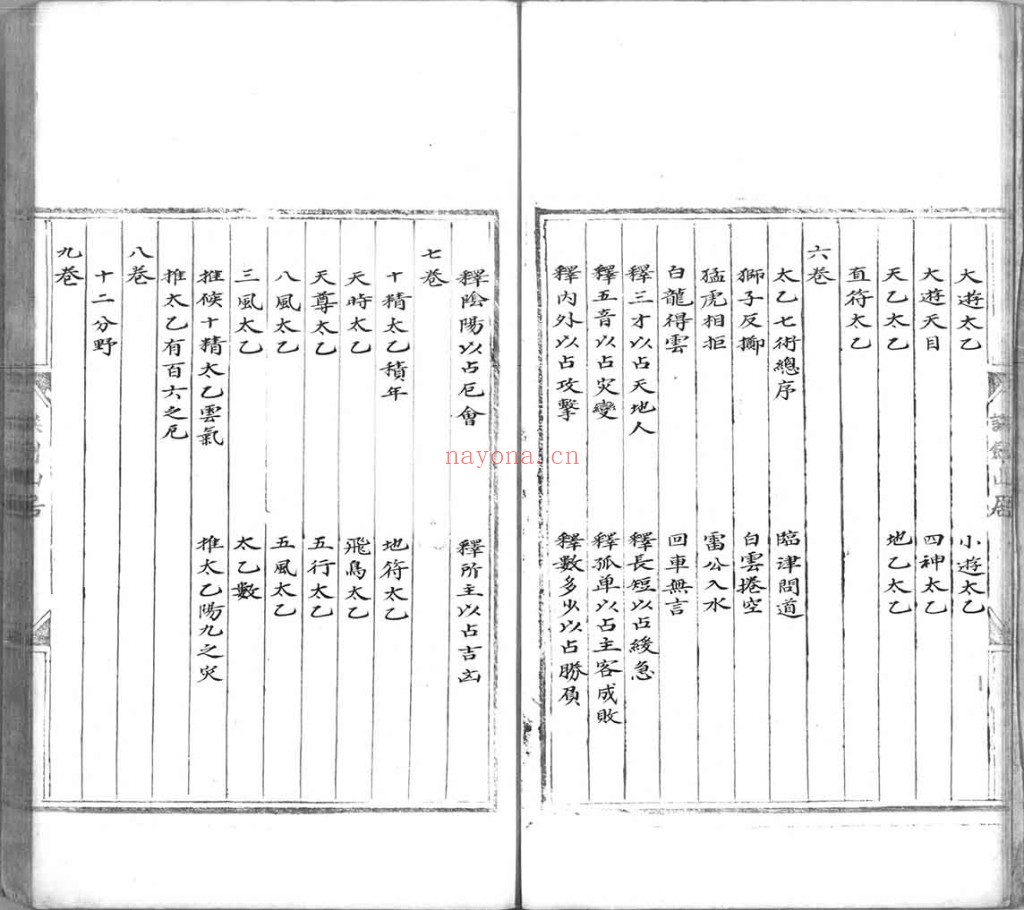 大遊太乙 小遊太乙
大遊天目 四神太乙
天乙太乙 地乙太乙
直符太乙
六卷
太乙七術總序 臨津問道
獅子反擲 白雲捲空
猛虎相拒 雷公入水
白龍得雲 回車無言
釋三才以占天地人 釋長短以占緩急
釋五音以占灾變 釋孤单以占主客成敗
釋內外以占攻擊 釋數多少以占勝負
釋陰陽以占厄會 釋所主以占吉凶
七卷
十精太乙積年 地符太乙
天時太乙 飛鳥太乙
天尊太乙 五行太乙
八風太乙 五風太乙
三風太乙 太乙數
推候十精太乙雲氣 推太乙陽九之灾
推太乙有百六之厄
八卷
十二分野
九卷
山居
nayona.cn